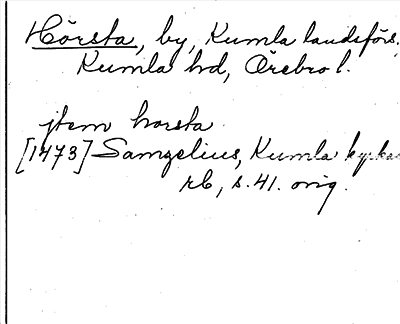 Hörsta, by, Kumla landsförs.
Kumla hd, Örebro l.
jtem horsta
[1473] Samzelius, Kumla kyrkas
rb, s. 41. orig.